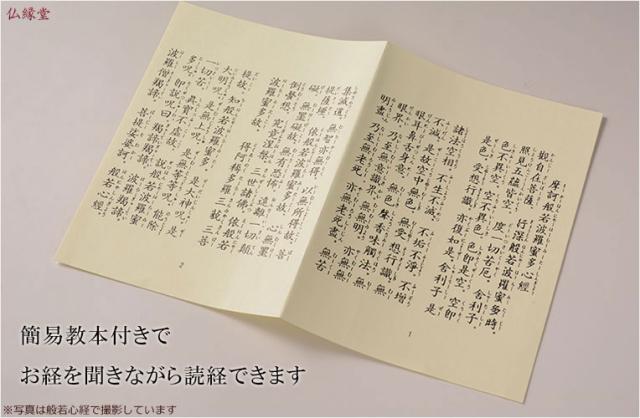 仏縁堂
摩訶般若波羅蜜多心經
觀自在菩薩。行深般若波羅蜜多時。
照見五蘊皆空。度一切苦厄。舍利子。
色不異空。空不異色。色即是空。空即
是色。受想行識。亦復如是。舍利子。是
諸法空相。不生不滅。不垢不淨。不增
不減。是故空中。無色。無受想行識。無
眼耳鼻舌身意。無色聲香味觸法。無
眼界。乃至無意識界。無無明。亦無無
明盡。乃至無老死。亦無老死盡。無苦
1
集滅道。無智亦無得。以無所得故。菩
提薩埵。依般若波羅蜜多故。心無罣
礙。無罣礙故。無有恐怖。遠離一切顛
倒夢想。究竟涅槃。三世諸佛。依般若
波羅蜜多故。得阿耨多羅三藐三菩
提故。知般若波羅蜜多。是大神呪。是
大明呪。是無上呪。是無等等呪。能除
一切苦。眞實不虛故。說般若波羅蜜
多呪。即說呪曰。羯諦。羯諦。波羅羯諦。
波羅僧羯諦。菩提娑婆訶。般若心經
2
簡易教本付きで
お経を聞きながら読経できます
※写真は般若心経で撮影しています